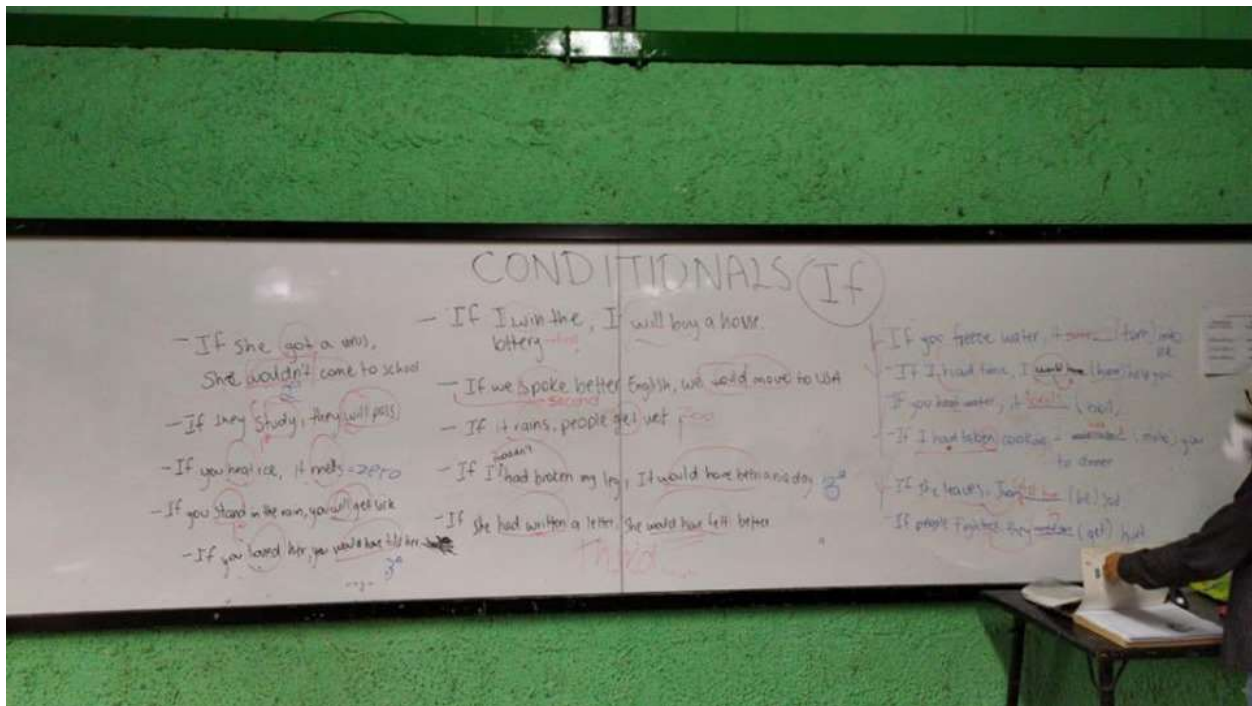 CONDITIONALS If
- If she got a virus,
She wouldn't come to school
- If they study, they will pass
- If you heat ice, it melts = zero
- If you stand in the rain, you will get sick
- If you loved her, you would have told her
3°
- If I win the, I will buy a house.
lottery
- If we spoke better English, we would move to USA
second
- If it rains, people get wet
- If I hadn't had broken my leg, It would have been a nice day 3°
- If she had written a letter, she would have felt better
Third
If you freeze water, it (turn) into
ice
- If I had time, I would have (have) help you
If you heat water, it boils (boil)
- If I had taken cookie (make) you
to dinner
If she leaves, (be) sad
If people fight, they (get) hurt